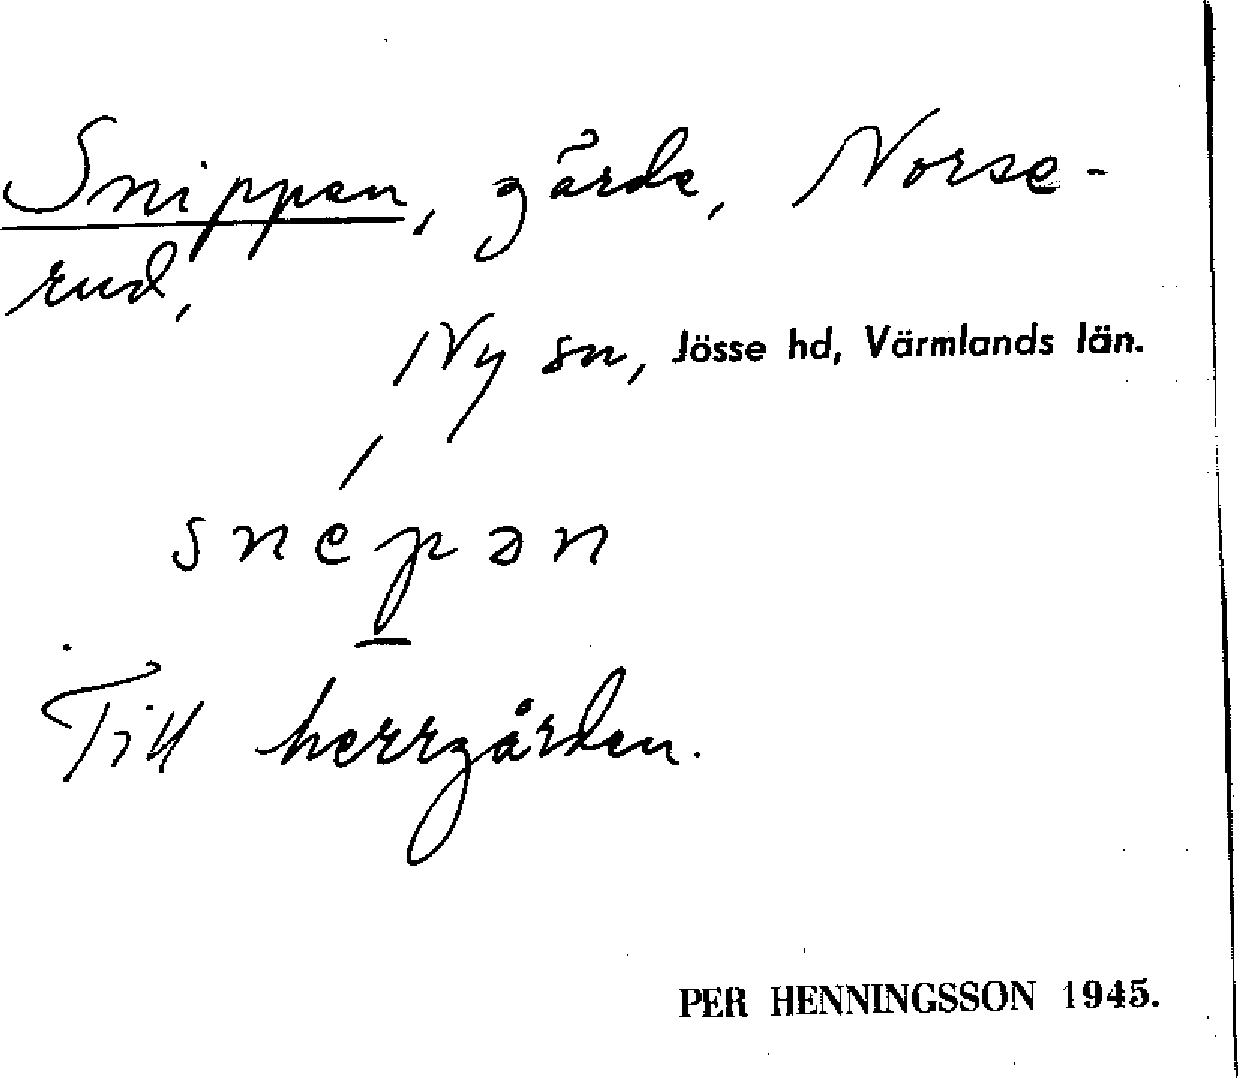 Snippen, gärde, Norse-
rud,
Ny sn, Jösse hd, Värmlands län.
snépən
Till herrgården.
PER HENNINGSSON 1945.